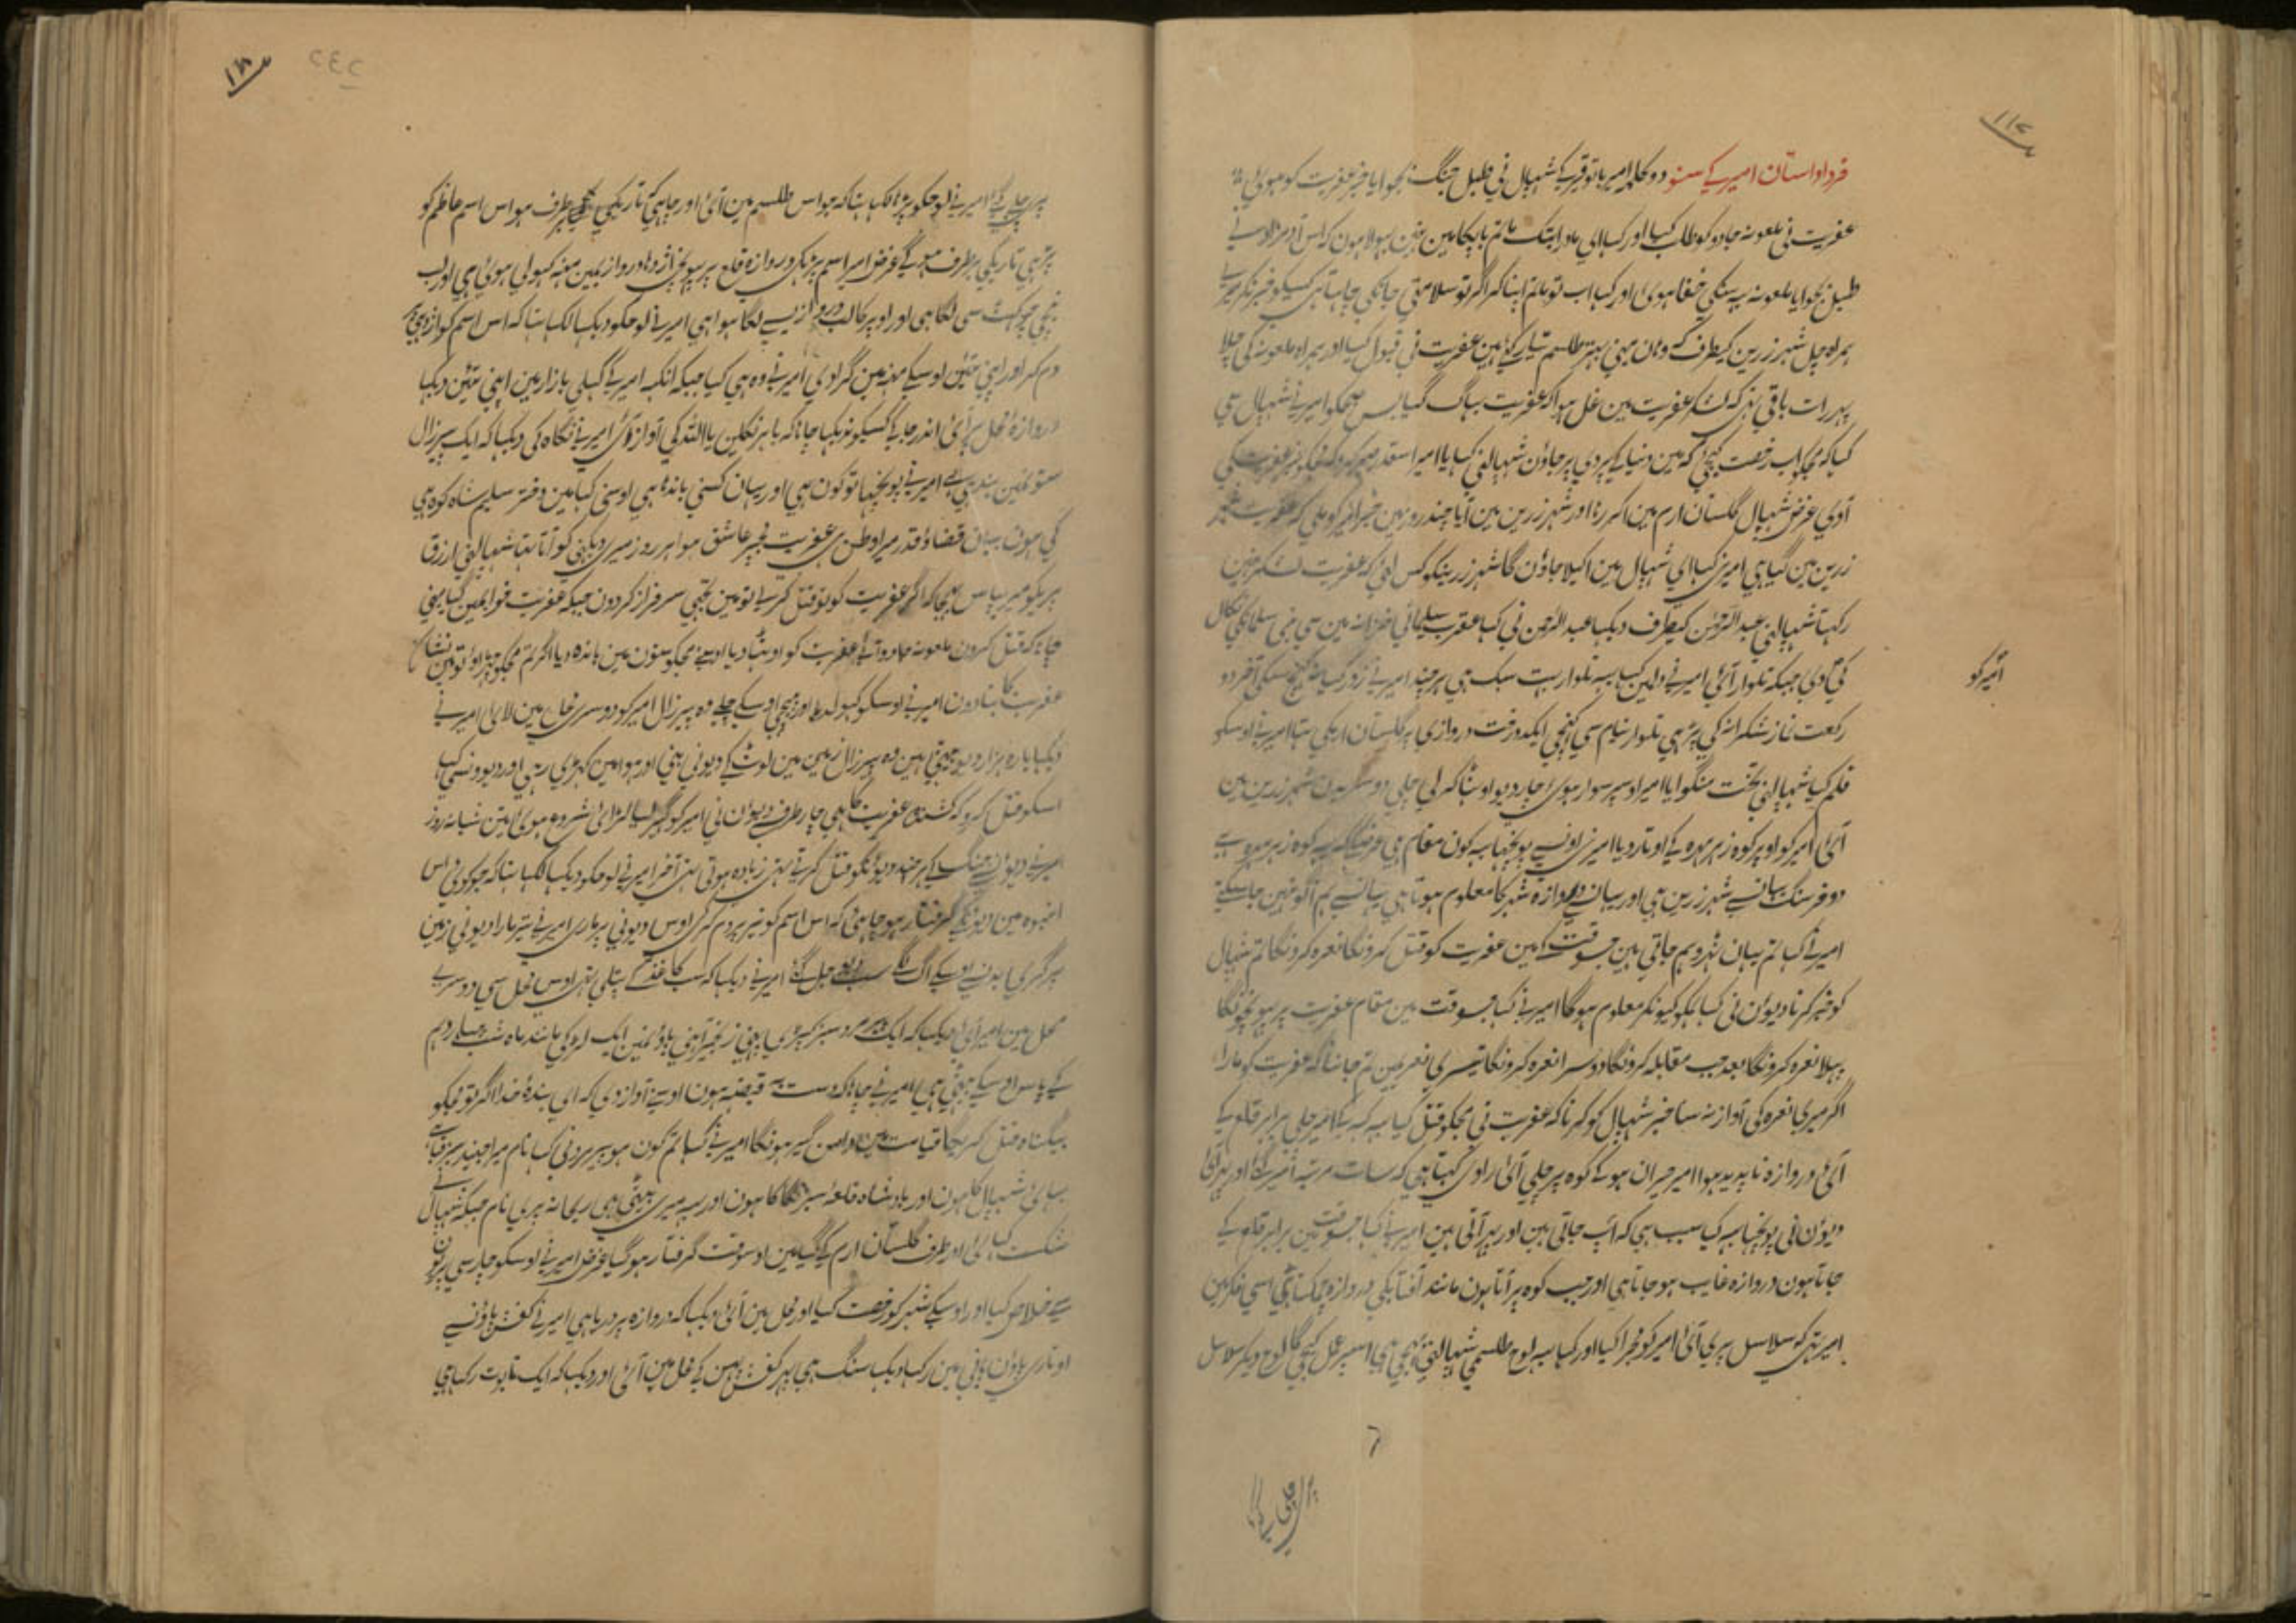 فرد داستان امیر کے سنو دو کلمہ امیر باتوقیر کے شہپال نی طبل جنگ بجوایا خبر عفریت کو ہوئی
عفریت نی ملعونہ جادو کو طلب کیا اور کہا ای مادر ابتک ماتم بابکا مین نہین بہولا ہون کہ اس آدمزاد نے
طبل بجوایا ملعونہ یہ سنکی خفا ہوی اور کہا اب تو ماتم اپنا کر اگر تو سلامتی جانکی چاہتا ہی کسیکو خبر نکر میرے
ہمراہ چل شہر زرین کیطرف کہ وہان مینی بہتر طلسم تیار کئے ہین عفریت نی قبول کیا اور ہمراہ ملعونہ کی چلا
پہر رات باقی تہی کہ لشکر عفریت مین غل ہوا کہ عفریت بہاگ گیا بس صبحکو امیر نے شہپال سی
کہا کہ مجکو اب رخصت کیجئی کہ مین دنیا کے پردی پر جاؤن شہپال نی کہا یا امیر اسقدر صبر کرو کہ مجکو خبر عفریت کی
آوی غرض شہپال گلستان ارم مین اکر رہا اور شہر زرین مین آیا چند روز مین خبر امیر کو ملی کہ عفریت شہر
زرین مین گیا ہی امیر نی کہا ای شہپال مین اکیلا جاؤن گا شہر زرینکو کس لئی کہ عفریت لشکر نہین
رکہتا شہپال نی عبدالرحمٰن کیطرف دیکہا عبدالرحمن نی کہا عقرب سلیمانی خزانہ مین سی نکال
کی دی جبکہ تلوار آئی امیر نے دلمین کہا یہ تلوار بہت سبک ہی ہر چند امیر نے زور کیا نہ کہنچ سکی آخر دو
امیر کو
رکعت نماز شکرانہ کی پڑہی تلوار نیام سی کہنچی ایک درخت دروازی پر گلستان ارمکی تہا امیر نی اوسکو
قلم کیا شہپال نی تخت منگوایا امیر اوسپر سوار ہوی چار دیو اوٹہا کر لی چلی دوسری دن شہر زرین مین
آئی امیر کو اوپر کوہ زہر مہرہ کے اوتار دیا امیر نی اونسے پوچہا یہ کون مقام ہی عرض کیا کہ یہ کوہ زہر مہرہ ہے
دو فرسنگ یہانسے شہر زرین ہی اور یہانسے دروازہ شہر کا معلوم ہوتا ہی یہانسے ہم آگو نہین جا سکتے
امیر نے کہا تم یہان ٹہرو ہم جاتی ہین جسوقت کہ مین عفریت کو قتل کرونگا نعرہ کرونگا تم شہپال
کو خبر کرنا دیوان نی کہا ہمکو کیونکر معلوم ہوگا امیر نے کہا جسوقت مین مقام عفریت پر پہونچونگا
پہلا نعرہ کرونگا بعد جب مقابلہ کرونگا دوسرا نعرہ کرونگا تیسری نعرہ مین تم جاننا کہ عفریت کو مارا
اگر میری نعرہ کی آواز نہ سنا خبر شہپال کو کرنا کہ عفریت نی مجکو قتل کیا یہ کہہ کے امیر چلی برابر قلعہ کے
آئی دروازہ ناپدید ہوا امیر حیران ہو کے کوہ پر چلی آئی راوی کہتا ہی کہ سات مرتبہ امیر گئے اور پہر آئی
دیوان نی پوچہا یہ کیا سبب ہی کہ آپ جاتی ہین اور پہر آتی ہین امیر نے کہا جسوقت مین برابر قلعہ کے
جاتا ہون دروازہ غایب ہو جاتا ہی اور جب کوہ پر آتا ہون مانند آفتابکی دروازہ چمکتا ہی اسی فکر مین
امیر تہی کہ سلاسل پری آئی امیر کو مجرا کیا اور کہا یہ لوح طلسمی شہپال نی بہیجی ہی اسپر عمل کیجی گا لوح دیکر سلاسل
پری چلے گئی امیر نے لوحکو پڑہا لکہا تہا کہ جو اس طلسم مین آئی اور چاہی کہ تاریکی برطرف ہو اس اسم عاظم کو
پڑہی تاریکی برطرف ہو گے غرض امیر اسم پڑہکر دروازہ قلعہ پر پہونچی اژدہا دروازہ مین منہ کہولی ہوئی ہی اور لب
نیچی چوکہٹ سی لگا ہی اور اوپر کا لب دروازیسے لگا ہوا ہی امیر نے لوحکو دیکہا لکہا تہا کہ اس اسم کو اژدہی پر
دم کر اور اپنی تئین اوسکے منہ مین گرا دی امیر نے وہ ہی کیا جبکہ انکہہ امیر کے کہلی بازار مین اپنی تئین دیکہا
دروازہ محل پر آئی اندر جا کے کسیکو ندیکہا چاہا کہ باہر نکلین یا اللہ کی آواز آئی امیر نے نگاہ کی دیکہا کہ ایک پیر زال
ستونمین بندہی ہے امیر نے پوچہا تو کون ہی اور یہان کسنی باندہا ہی اوسنی کہا مین دختر سلیم شاہ کوہی
کی ہون یہان قضا و قدر میرا وطن ہی عفریت مجپر عاشق ہوا ہر روز میری دیکہنی کو آتا تہا شہپال نی ارزق
پریکو میری پاس بہیجا کہ اگر عفریت کو تو قتل کر سے تو مین تجہی سرفراز کردون جبکہ عفریت خوابمین گیا مینی
چاہا کہ قتل کرون ملعونہ جادو آئی عفریت کو اوٹہا دیا اوسنے مجکو ستون مین باندہ دیا اگر تم مجکو چہڑاؤ تو مین نشان
عفریت کا بتا دون امیر نے اوسکو کہول دیا اور پیچہی اوسکے چلے وہ پیر زال امیر کو دوسری محل مین لائی امیر نے
دیکہا بارہ ہزار دیو بیٹہی ہین وہ پیر زال زمین مین لوٹ کے دیونی بنی اور ہوا مین کہڑی رہی اور دیوونسی کہا
اسکو قتل کرو کہ کشندہ عفریت کا ہی چار طرف سے دیوان نی امیر کو گہیر لیا لڑائی شروع ہوی تین شبانہ روز
امیر نے دیوانسے جنگ کے ہر چند دیونکو قتل کرتے تہی زیادہ ہوتی تہی آخر امیر نے لوحکو دیکہا لکہا تہا کہ جو کوئی اس
انبوہ مین دیونکے گرفتار ہو چاہئی کہ اس اسم کو تیر پر دم کر کے اوس دیونی پر ماری امیر نے تیر مارا دیونی زمین
پر گری بدنسے اوسکے آگ لگے سب دیو جل گئے امیر نے دیکہا کہ سب کاغذ کے پتلی تہی اوس محل سی دوسرے
محل مین امیر آئی دیکہا کہ ایک پیر مرد سبز کپڑی پہنی زنجیر آہنی پاؤنمین ایک لڑکی مانند ماہ شب چہاردہم
کے پاس اوسکے بیٹہی ہی امیر نے چاہا کہ دست بہ قبضہ ہون اوسنے آواز دی کہ ای بندہ خدا اگر تو مجکو
بیگناہ قتل کریگا قیامت مین دامن گیر ہونگا امیر نے کہا تم کون ہو پیر مرد نی کہا نام میرا جنید سبز قبا ہے
بہائی شہپال کا ہون اور بادشاہ قلعہ سبز نگار کا ہون اور یہ میری بیٹی ہی ریحانہ پری نام جبکہ شہپال نے
شکست کہائی اور طرف گلستان ارم کے گیا مین اوسوقت گرفتار ہو گیا غرض امیر نے اوسکو چار سی پریون
سے خلاص کیا اور اوسکے شہر کو رخصت کیا اور محل مین آئی دیکہا کہ دروازہ پر دریا ہی امیر نے کفش پاؤنسے
اوتاری پاؤن پانی مین رکہا دیکہا سنگ ہی پہر کفش پہن کے محل مین آئی اور دیکہا کہ ایک تابوت رکہا ہی